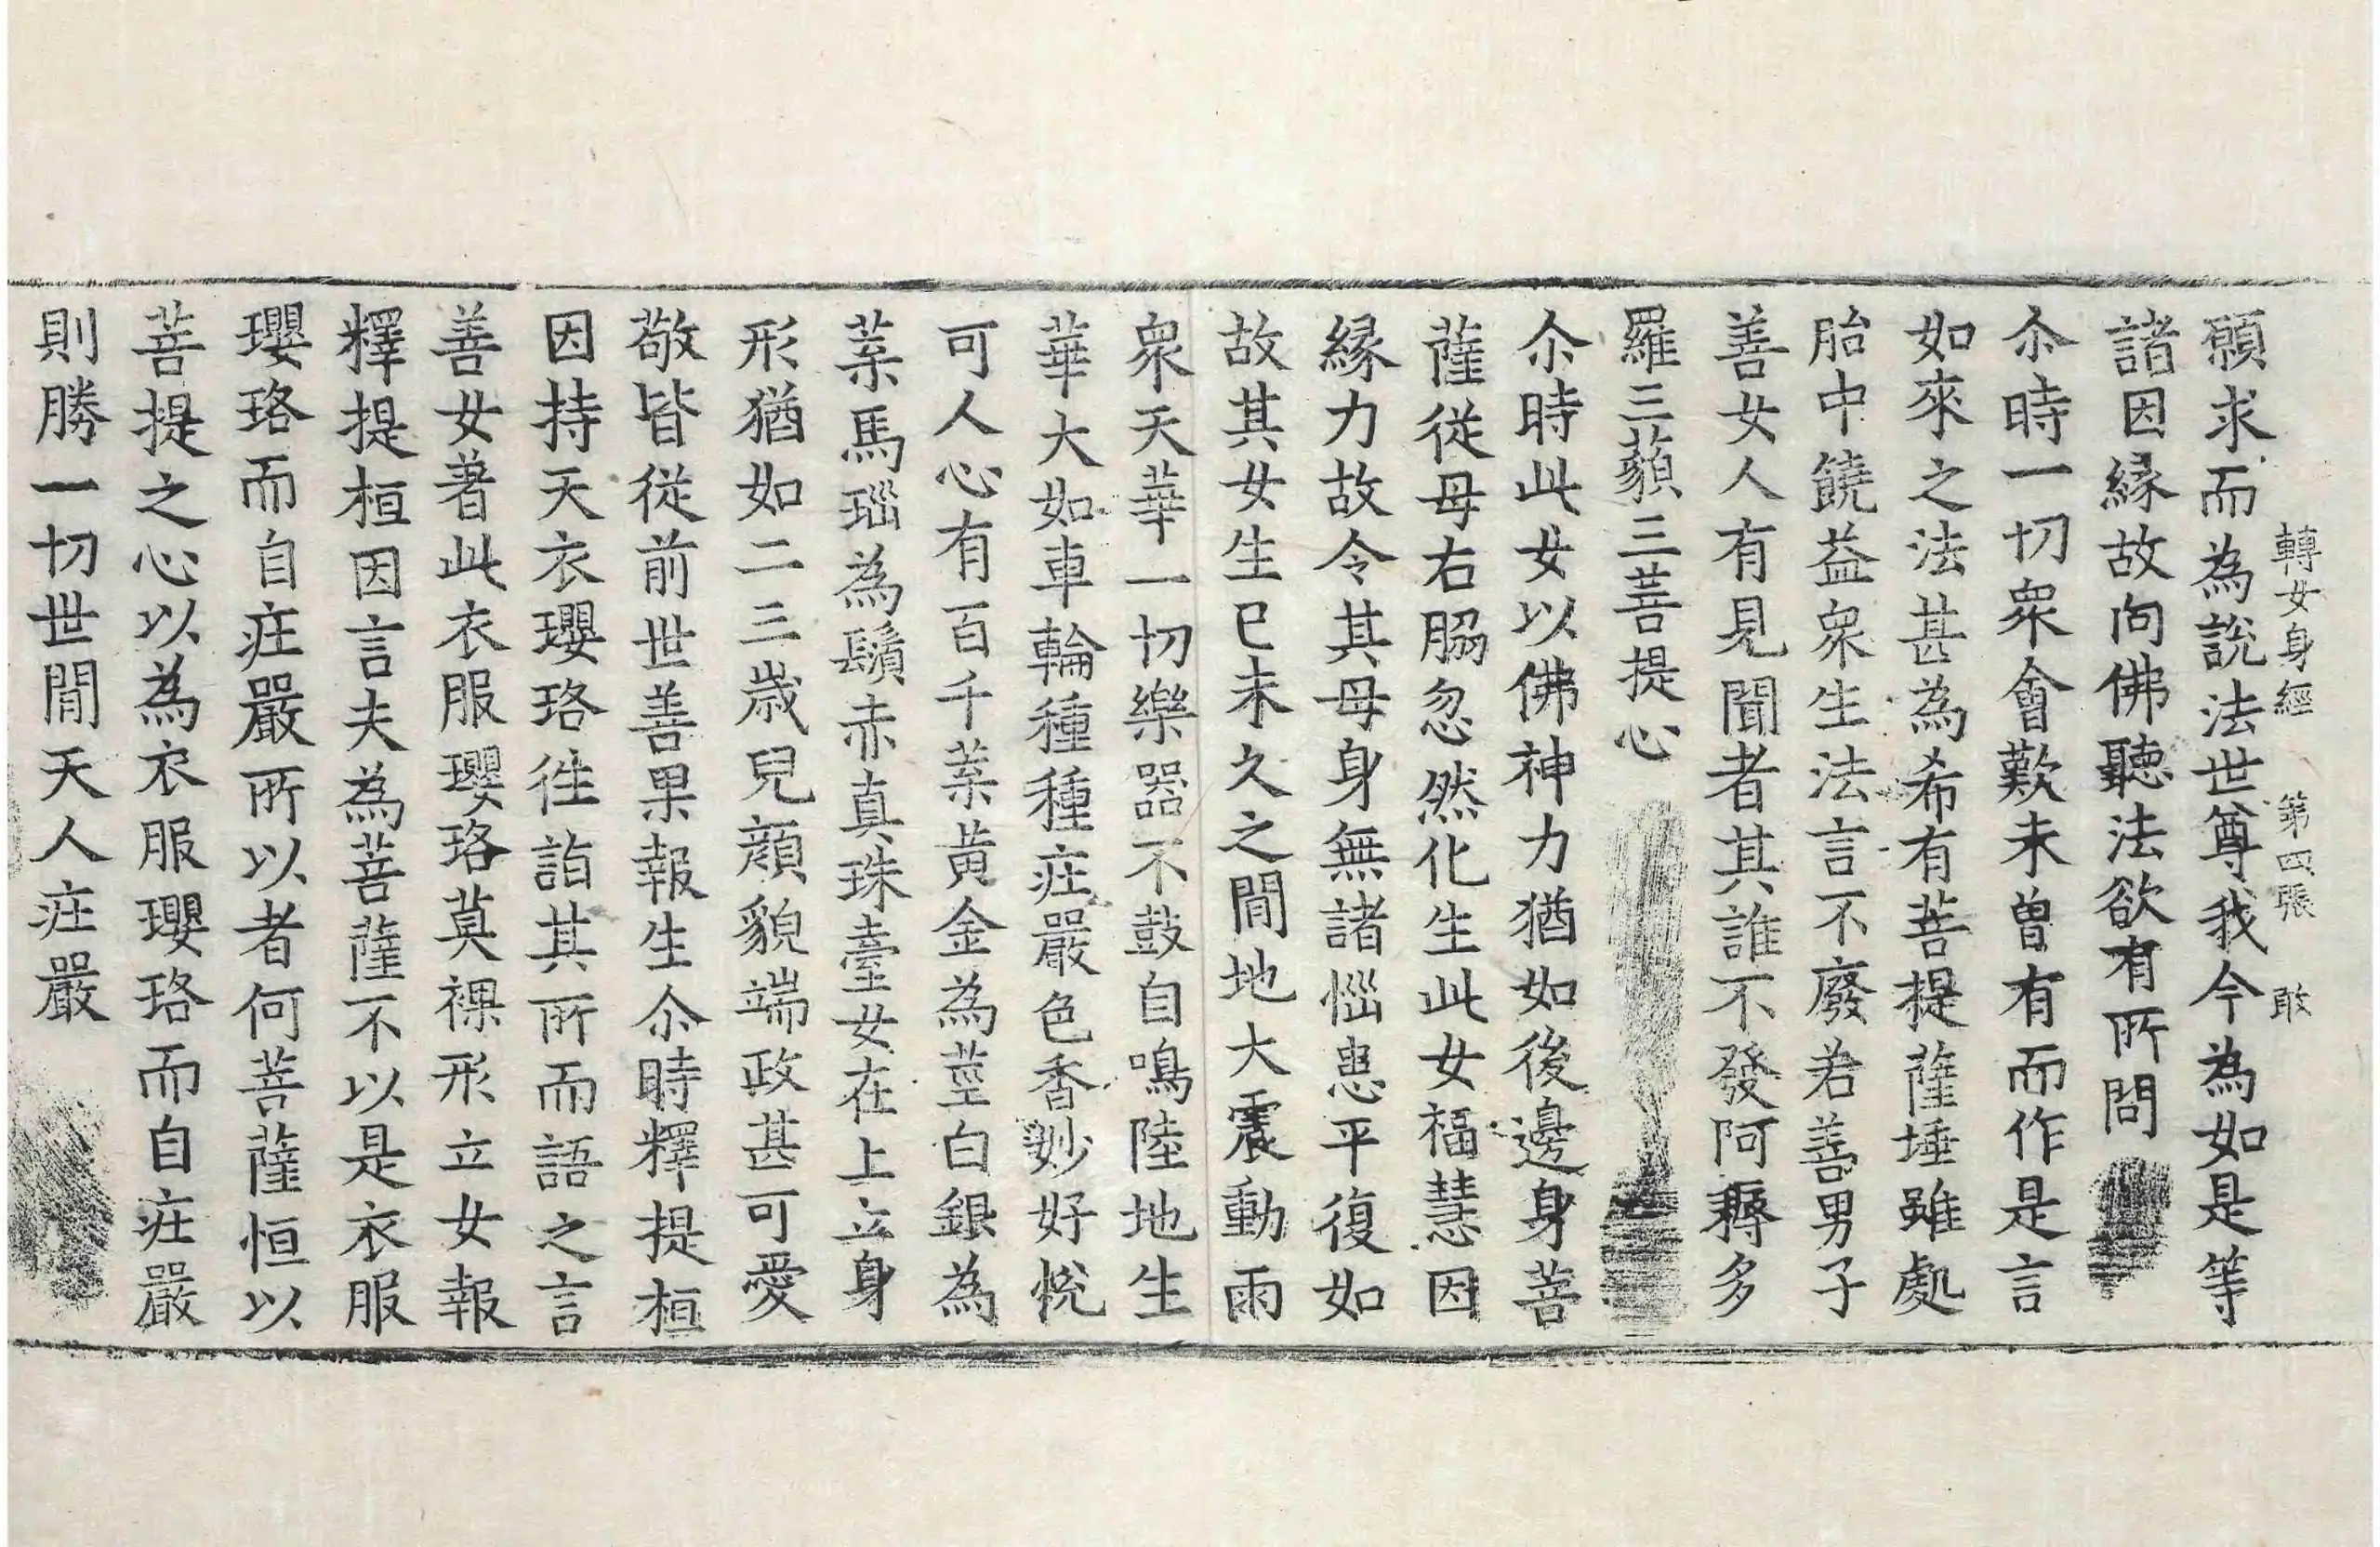 轉女身經 第四張 敢
願求而為說法世尊我今為如是等
諸因縁故向佛聽法欲有所問
尒時一切衆會歎未曽有而作是言
如來之法甚為希有菩提薩埵雖處
胎中饒益衆生法言不廢若善男子
善女人有見聞者其誰不發阿耨多
羅三藐三菩提心
尒時此女以佛神力猶如後邊身菩
薩從母右脇忽然化生此女福慧因
縁力故令其母身無諸惱患平復如
故其女生已未久之閒地大震動雨
衆天華一切樂器不鼓自鳴陸地生
華大如車輪種種庄嚴色香妙好悅
可人心有百千葉黄金為莖白銀為
葉馬瑙為鬚赤真珠臺女在上立身
形猶如二三歲兒顔貌端政甚可愛
敬皆從前世善果報生尒時釋提桓
因持天衣瓔珞徃詣其所而語之言
善女著此衣服瓔珞莫裸形立女報
釋提桓因言夫為菩薩不以是衣服
瓔珞而自庄嚴所以者何菩薩恒以
菩提之心以為衣服瓔珞而自庄嚴
則勝一切世閒天人庄嚴